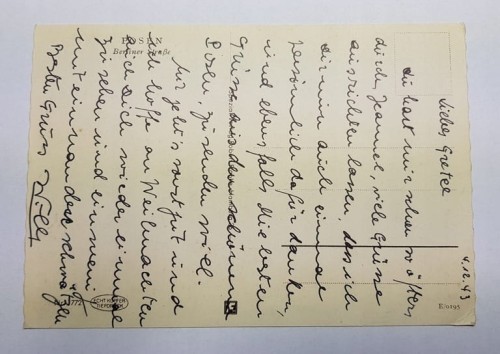 POSEN
Berliner Straße
12.43
Liebes Gretel
du hast mir schon so öfters,
durch viele Grüsse
ausrichten lassen, dass ich
Dir nun auch einmal
persönlich dafür danken,
und ebenfalls die besten
Grüsse aus dem schönen
Posen, zusenden will.
Mir geht's sonst gut und
ich hoffe an Weihnachten
Dich wieder einmal
zu sehen und ein
miteinander
Besten Gruss Willi
772
ECHT KUPFER
TIEFDRUCK